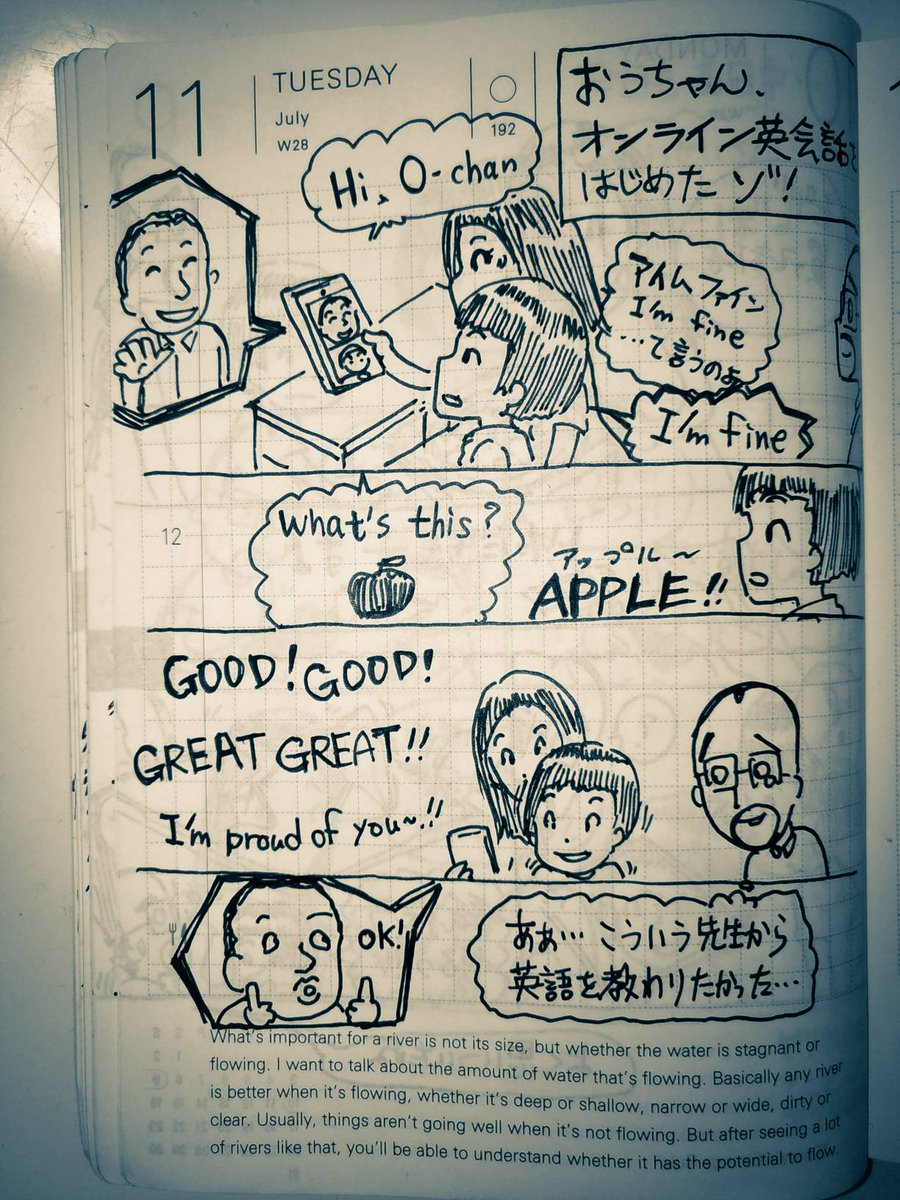 11
TUESDAY
July
W28
192
おうちゃん、
オンライン英会話を
はじめたゾ!
Hi, O-chan
アイムファイン
I'm fine
…て言うのよ
I'm fine
12
What's this?
アップル〜
APPLE!!
GOOD! GOOD!
GREAT GREAT!!
I'm proud of you~!!
OK!
ああ… こういう先生から
英語を教わりたかった…
What's important for a river is not its size, but whether the water is stagnant or
flowing. I want to talk about the amount of water that's flowing. Basically any river
is better when it's flowing, whether it's deep or shallow, narrow or wide, dirty or
clear. Usually, things aren't going well when it's not flowing. But after seeing a lot
of rivers like that, you'll be able to understand whether it has the potential to flow.